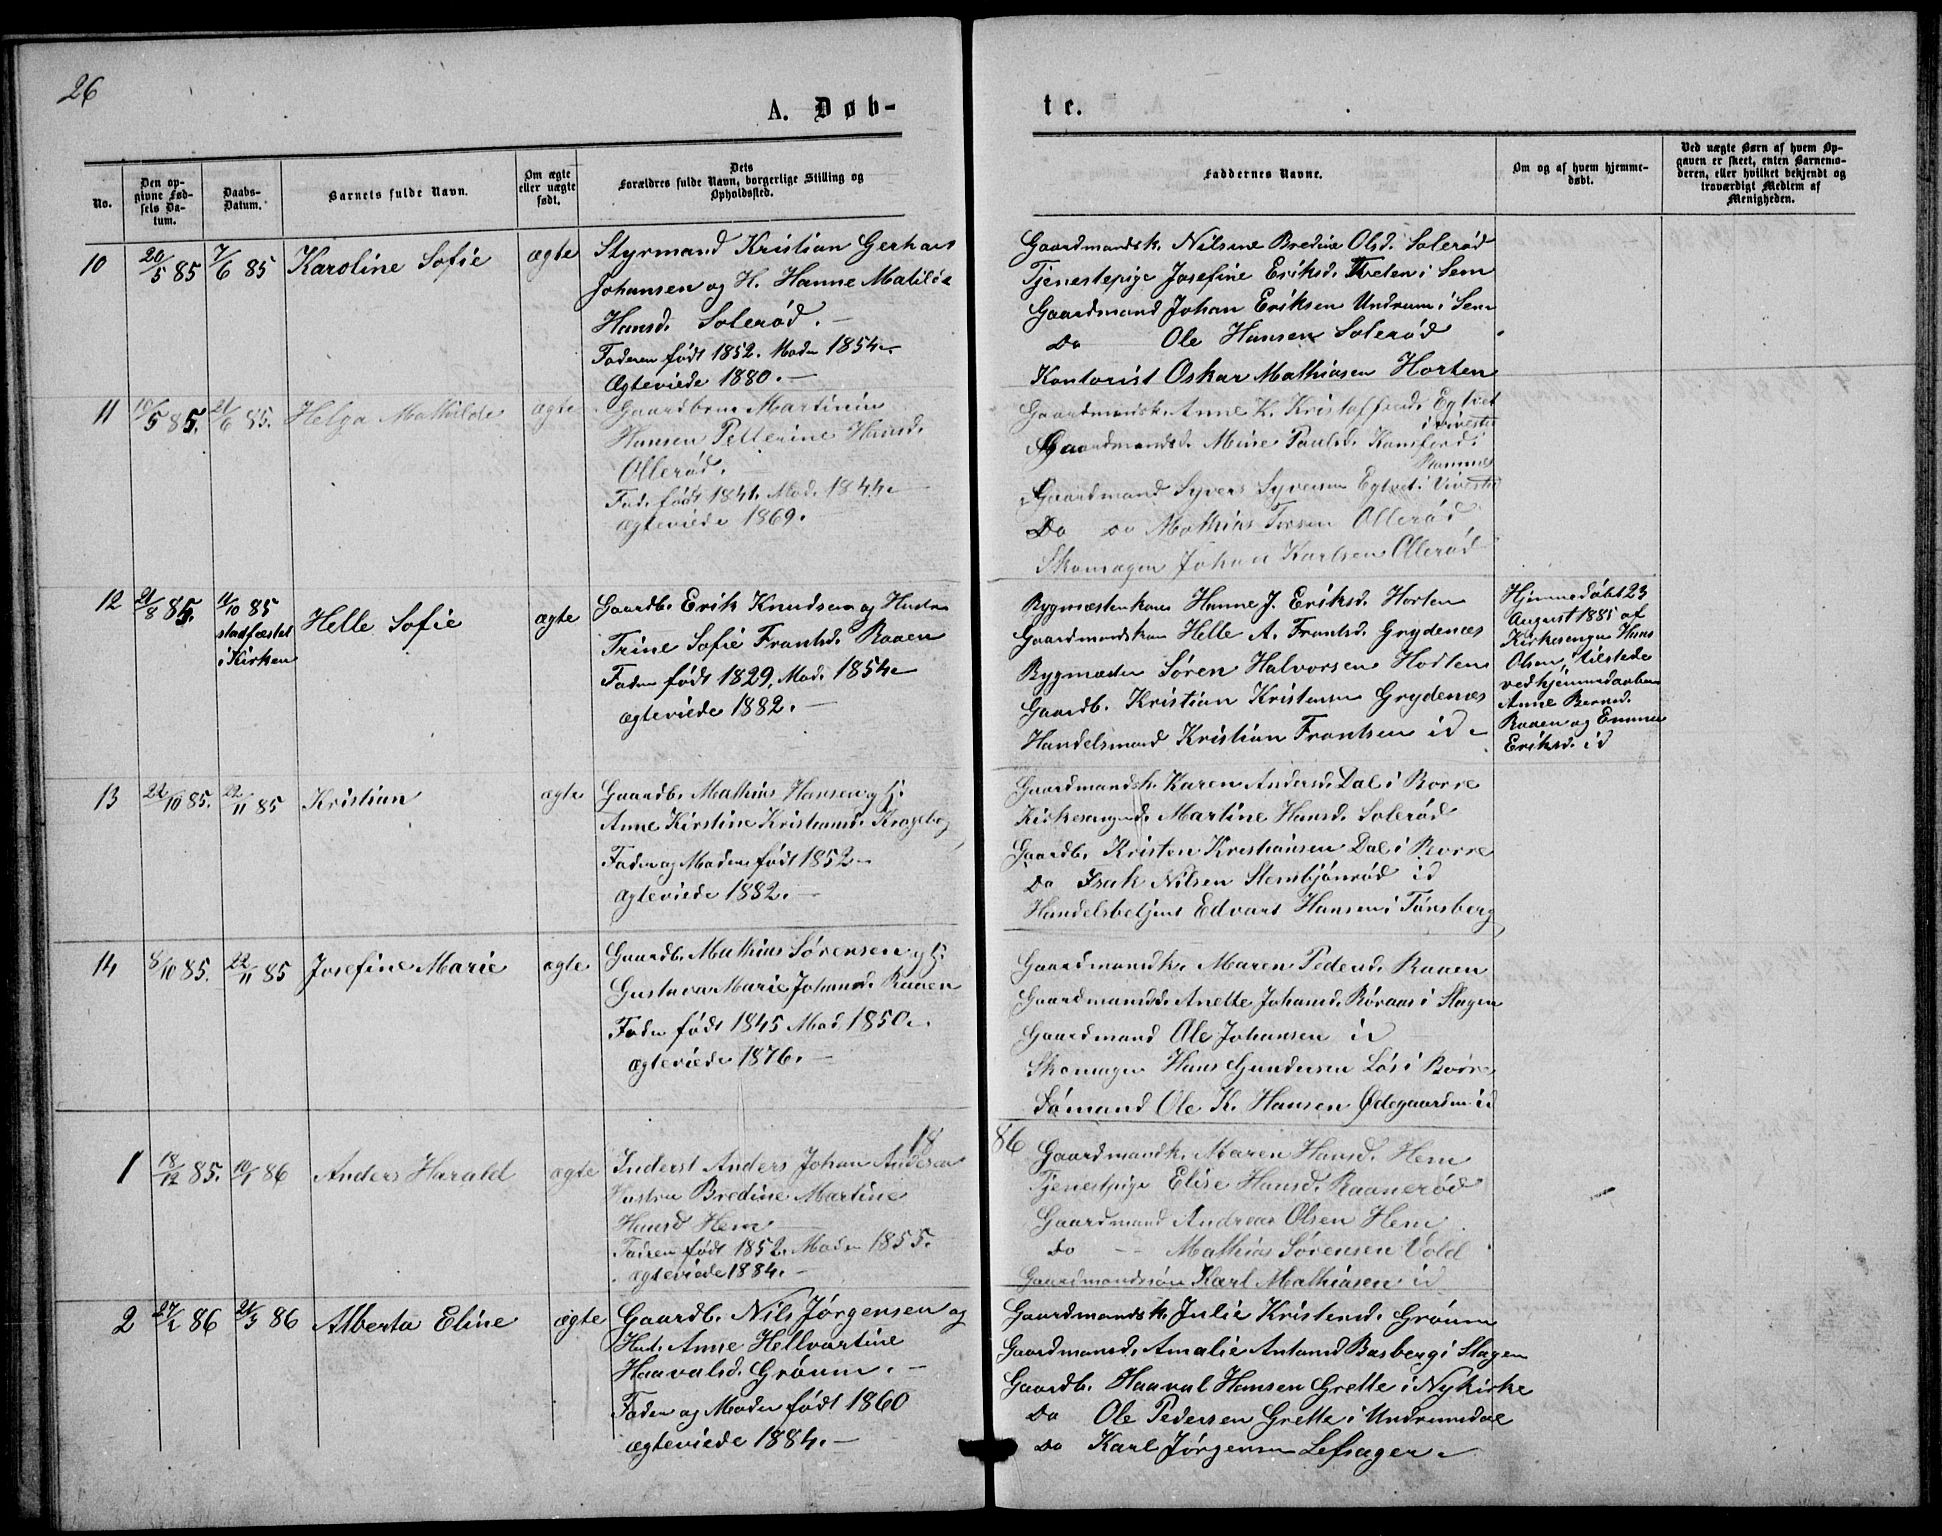 26
A. Døb-
te.
No.
Den op-
givne Fød-
sels Da-
tum.
Daabs-
Datum.
Barnets fulde Navn.
Om ægte
eller uægte
født.
Dets
Forældres fulde Navn, borgerlige Stilling og
Opholdssted.
Faddernes Navne.
Om og af hvem hjemme-
døbt.
Ved uægte Børn af hvem Op-
gaven er skeet, enten Barnemo-
deren, eller hvilket bekjendt og
troværdigt Medlem af
Menigheden.
10
20/5 85
7/6 85
Karoline Sofie
ægte
Styrmand Kristian Gerhard
Johansen og H. Hanne Matilde
Hansd. Solerød.
Faderen født 1852. Moder 1854.
Ægteviede 1880.
Gaardmandsk. Nilsine Bredine Olsd. Solerød
Tjenestepige Josefine Eriksd. Tveten i Sem
Gaardmand Johan Eriksen Undrum i Sem
Do Ole Hansen Solerød
Kontorist Oskar Mathiasen Horten
11
5 85.
21/6 85.
Helga Mathilde
ægte
Gaardbrur Martinin
Hansen Petterine Hansd.
Ollerød.
Fad. født 1841. Mod. 1844.
Ægteviede 1869.
Gaardmandsk. Anne K. Kristoffersd. Egtvet
i Vivestad
Gaardmandsd. Mine Paulsd.
Ramnes
Gaardmand Syvert Syversen Egtvet i Vivestad
Do Do Mathias Torsen Ollerød
Skomager Johan Karlsen Ollerød
12
21/8 85.
11/10 85
stadfæstet
i Kirken
Helle Sofie
ægte
Gaardb. Erik Knudsen og Hustru
Trine Sofie Frantsd. Raaen
Faden født 1829, Mod. 1854
ægteviede 1882.
Bygmesterkone Hanne J. Eriksd. Horten
Gaardmandskone Helle A. Frantsd. Grydenæs
Bygmester Søren Halvorsen Hodten
Gaardb. Kristian Kristensen Grydenæs
Handelsmand Kristian Frantsen id
Hjemmedøbt 23
August 1885 af
Kirkesanger Hans
Olsen, tilstede
ved hjemmedaaben
Anne Berntsd.
Raaen og Emma
Eriksd. id
13
22/10 85.
22/11 85
Kristian
ægte
Gaardb. Mathias Hansen og H.
Anne Kirstine Kristiansd. Krageberg
Fader og Moder født 1852
Ægteviede 1882.
Gaardmandsk. Karen Andersd. Dal i Borre
Kirkesangerd. Martine Hansd. Solerød
Gaardb. Kristen Kristiansen Dal i Borre
Do Isak Nilsen Stensbjönrød id
Handelsbetjent Edvart Hansen i Tønsberg
14
8/10 85.
22/11 85
Josefine Marie
ægte
Gaardb. Mathias Sørensen og H.
Gustava Marie Johansd. Raaen
Fader født 1845 Mod. 1850.
ægteviede 1876.
Gaardmandsk. Maren Pedersd. Raaen
Gaardmandsd. Anette Johansd. Røraas i Slagen
Gaardmand Ole Johansen id
Skomager Hans Gundersen Løs i Borre
Sømand Ole K. Hansen Ødegaarden id
18
86
1
18/12 85.
10/1 86
Anders Harald
ægte
Inderst Anders Johan Andersen
Hustru Bredine Martine
Hansd Hem
Faderen født 1852. Moder 1855.
ægteviede 1884.
Gaardmandk. Maren Hansd. Hem
Tjenestpige Elise Hansd. Raanerød
Gaardmand Andreas Olsen Hem
Do Mathias Sørensen Vold
Gaardmandssøn Karl Mathiasen id
2
27/1 86
21/3 86
Alberta Eline
ægte
Gaardb. Nils Jørgensen og
Hust. Anne Hellvartine
Haavalsd. Grøum.
Fader og Moder født 1860
ægteviede 1884.
Gaardmandsk. Julie Kristensd. Grøum
Gaardmansd. Amalie Antonsd Basberg i Slagen
Gaardb. Haaval Hansen Grette i Nykirke
Do Ole Pedersen Grette i Undrumsdal
Do Karl Jørgensen Lefsager